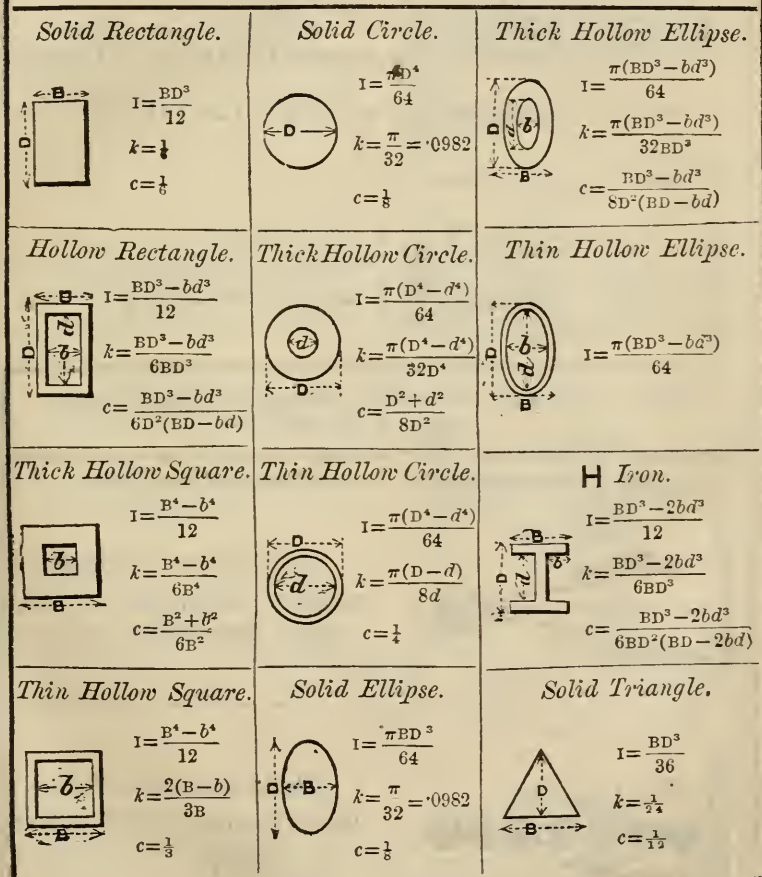 Solid Rectangle.
B
D
I=BD³/12
k=⅙
c=⅙
Solid Circle.
D
I=πD⁴/64
k=π/32=·0982
c=⅛
Thick Hollow Ellipse.
D
d
b
B
I=π(BD³−bd³)/64
k=π(BD³−bd³)/32BD³
c=BD³−bd³/8D²(BD−bd)
Hollow Rectangle.
B
D
d
b
I=BD³−bd³/12
k=BD³−bd³/6BD³
c=BD³−bd³/6D²(BD−bd)
Thick Hollow Circle.
d
D
I=π(D⁴−d⁴)/64
k=π(D⁴−d⁴)/32D⁴
c=D²+d²/8D²
Thin Hollow Ellipse.
D
b
d
B
I=π(BD³−bd³)/64
Thick Hollow Square.
b
B
I=B⁴−b⁴/12
k=B⁴−b⁴/6B⁴
c=B²+b²/6B²
Thin Hollow Circle.
D
d
I=π(D⁴−d⁴)/64
k=π(D−d)/8d
c=¼
H Iron.
B
D
d
b
I=BD³−2bd³/12
k=BD³−2bd³/6BD³
c=BD³−2bd³/6BD²(BD−2bd)
Thin Hollow Square.
b
B
I=B⁴−b⁴/12
k=2(B−b)/3B
c=⅓
Solid Ellipse.
D
B
I=πBD³/64
k=π/32=·0982
c=⅛
Solid Triangle.
D
B
I=BD³/36
k=1/24
c=1/12